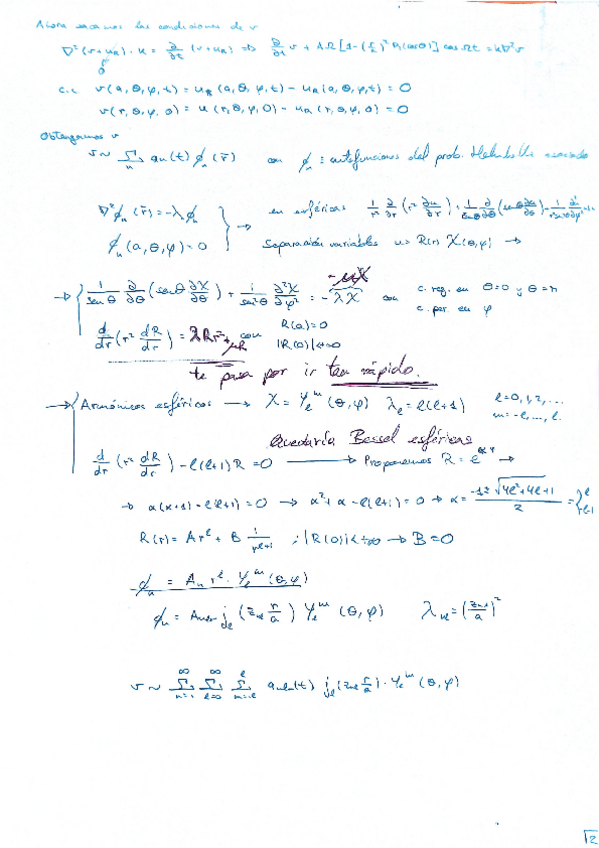 Ahora sacamos las condiciones de v
∇²(v+u_R)·κ = ∂/∂t (v+u_R) ⇒ ∂/∂t v + AΩ[1-(r/a)² P₁(cosθ)] cos Ωt = κ∇²v
0
c.c. v(a,θ,φ,t) = u_R(a,θ,φ,t) - u_R(a,θ,φ,t) = 0
v(r,θ,φ,0) = u(r,θ,φ,0) - u_R(r,θ,φ,0) = 0
Obtengamos v
v ~ Σ_n a_n(t) ϕ_n(r̄) con ϕ_n : autofunciones del prob. Helmholtz asociado
∇²ϕ_n(r̄) = -λϕ_n
en esféricas 1/r² ∂/∂r (r² ∂u/∂r) + 1/senθ ∂/∂θ (senθ ∂u/∂θ)
ϕ_n(a,θ,φ) = 0
Separación variables u = R(r) X(θ,φ) →
-μX
→ 1/senθ ∂/∂θ (senθ ∂X/∂θ) + 1/sen²θ ∂²X/∂φ² = -λX con c. reg. en θ=0 y θ=π
c. per. en φ
d/dr (r² dR/dr) = λRr² + μR con R(a)=0
|R(0)|<∞
te pasa por ir tan rápido.
→ Armónicos esféricos → X = Y_l^m (θ,φ) λ_l = l(l+1) l=0,1,2,...
m=-l,...,l.
Quedaría Bessel esféricas
d/dr (r² dR/dr) - l(l+1)R = 0 → Proponemos R = e^αr →
→ α(α+1) - l(l+1) = 0 → α²+α-l(l+1) = 0 → α = (-1±√(4l²+4l+1))/2 = { l
-l-1
R(r) = A r^l + B 1/r^(l+1) ; |R(0)|<+∞ → B=0
ϕ_n = A_n r^l · Y_l^m (θ,φ)
ϕ_n = A_nlm j_l (z_nl r/a) Y_l^m (θ,φ) λ_nl = (z_nl/a)²
v ~ Σ_{n=1}^∞ Σ_{l=0}^∞ Σ_{m=-l}^l a_nlm(t) j_l (z_nl r/a) · Y_l^m (θ,φ)
√2